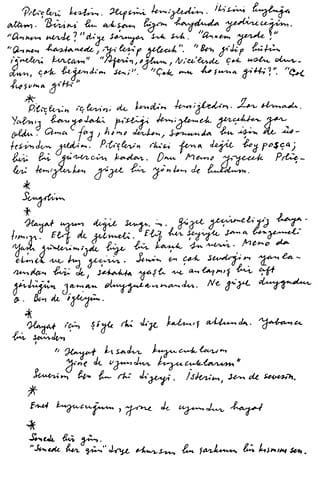 Piliçleri kestim. Hepsini temizledim. İkisini buzluğa
attım. Birini bu akşam bizim haydudа yedireceğim.
"Annem nerde?" diye soruyor sık sık. "Annem nerde?"
"Annen hastanede, iyileşip gelecek". "Ben gidip bütün
iğneleri kırcam" "Aferin, oğlum,
çok beğendim seni". "Çok mu hoşuna gitti?". "Çok
hoşuma gitti"
*
Piliçlerin içlerini de kendim temizledim. Zor olmadı.
Yalnız banyodaki pisliği temizlemek gerçekten zor
oldu. Ama sonunda bu işin de üs-
tesinden geldim. Piliçlerin ikisi fena değil
biri bir güvercin kadar. Onu Memo yiyecek. Piliç-
leri temizlerken güzel bir yöntem de buldum.
*
Sevgilim
*
Hayat uzun değil sevgi. Güzel geçirmeliyiz haya-
tımızı. Elif de gelmeli. Elif her şeyiyle sana benzemeli
Yaşlı günlerimizde bize bir kaşık su verir. Memo da
ekmek ve tuz getirir. Senin en çok sevdiğin yanla-
rından biri de, sokakta yaşlı ve anlaşmış bir çift
gördüğün zaman duygulanmandır. Ne güzel duygudur
o. Ben de öyleyim.
*
Hayat için şöyle iki dize kalmış aklımda. Yabancı
bir şairden
"Hayat kısadır kuzucuklarım
Yine de uzundur kuzucuklarım"
Severim ben bu iki dizeyi. İsterim, sen de sevesin.
*
Evet kuzucuğum, yine de uzundur hayat
*
Sende bir gün.
"Sende her gün" diye okursan bu şarkının bir kısmını sen.